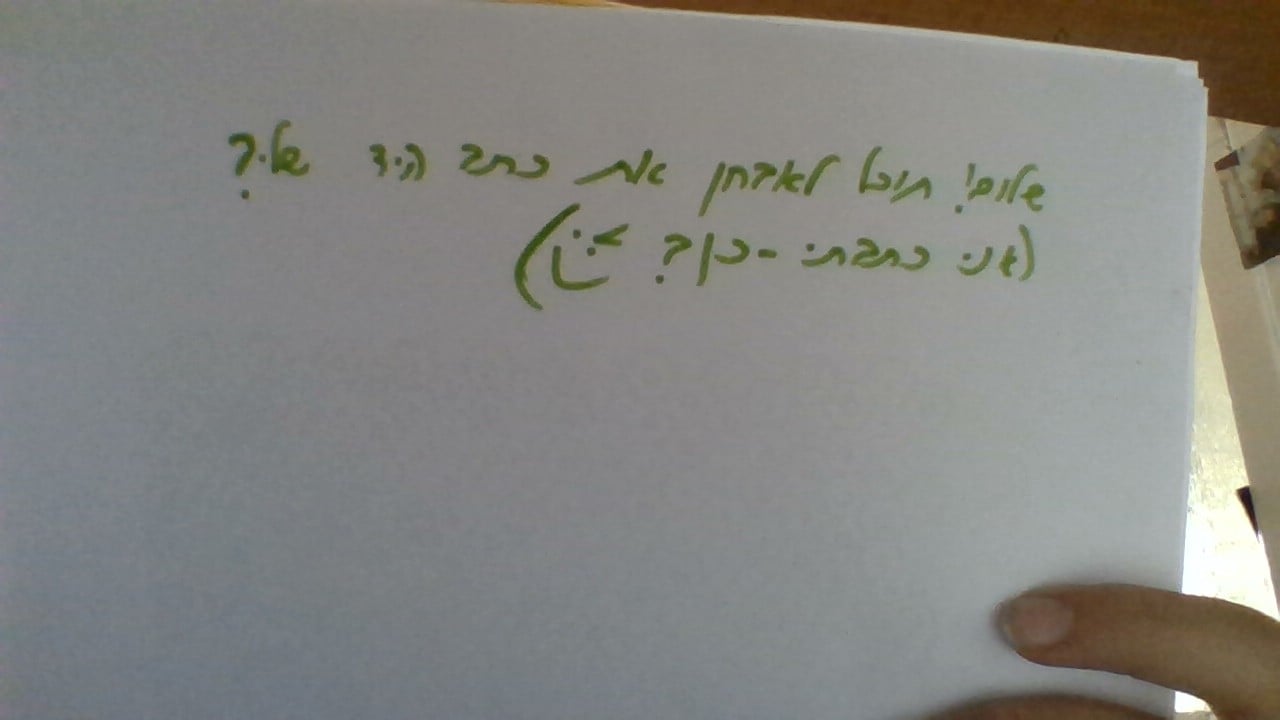 שלום! תוכל לאבחן את כתב היד שלי?
(אני כתבתי - כן? :-)